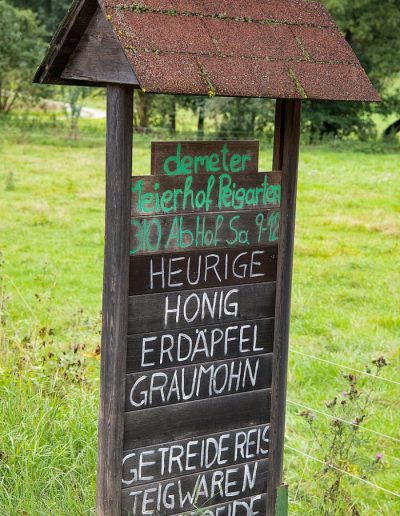 demeter
Meierhof Peigarten
BIO Ab Hof Sa 9-12
HEURIGE
HONIG
ERDÄPFEL
GRAUMOHN
GETREIDE REIS
TEIGWAREN